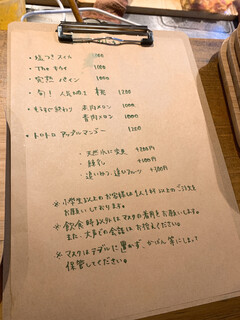 ・塩づきスイカ 1000
・The キウイ 1000
・完熟 パイン 1000
・旬! 人気 No.1 桃 1200
・もうすぐ終わり 赤肉メロン 1200
青肉メロン 1200
・トロトロ アップルマンゴー 1300
・天然氷に変更 +200円
・練乳 +100円
・追いみつ、追いフルーツ +300円
※小学生以上のお客様は1人1杯以上のご注文を
お願いしております。
※飲食時以外はマスクの着用をお願いします。
また、大声での会話はお控えください。
※マスクはテーブルに置かず、かばん等にしまって
保管してください。